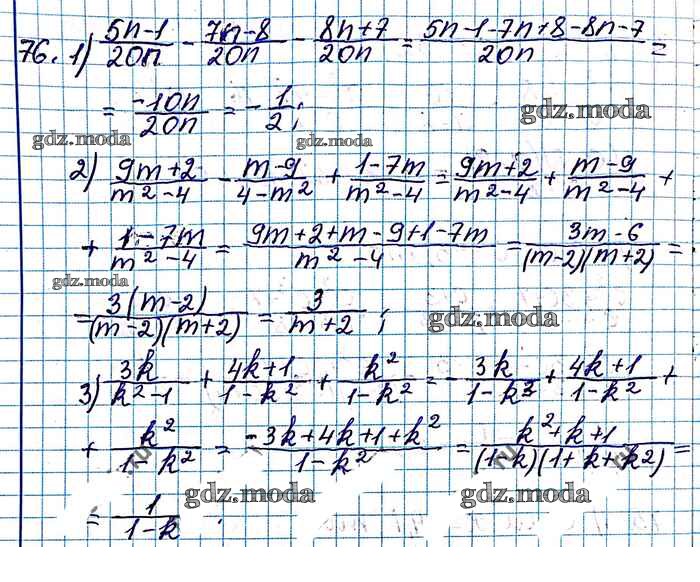 76. 1) (5n-1)/(20n) - (7n-8)/(20n) - (8n+7)/(20n) = (5n-1-7n+8-8n-7)/(20n) =
= (-10n)/(20n) = -1/2;
gdz.moda
gdz.moda
gdz.moda
2) (9m+2)/(m²-4) - (m-9)/(4-m²) + (1-7m)/(m²-4) = (9m+2)/(m²-4) + (m-9)/(m²-4) +
+ (1-7m)/(m²-4) = (9m+2+m-9+1-7m)/(m²-4) = (3m-6)/((m-2)(m+2)) =
gdz.moda
= (3(m-2))/((m-2)(m+2)) = 3/(m+2);
gdz.moda
3) (3k)/(k²-1) + (4k+1)/(1-k²) + (k²)/(1-k²) = -(3k)/(1-k³) + (4k+1)/(1-k²) +
+ (k²)/(1-k²) = (-3k+4k+1+k²)/(1-k²) = (k²+k+1)/((1-k)(1+k+k²)) =
= 1/(1-k).
gdz.moda
gdz.moda